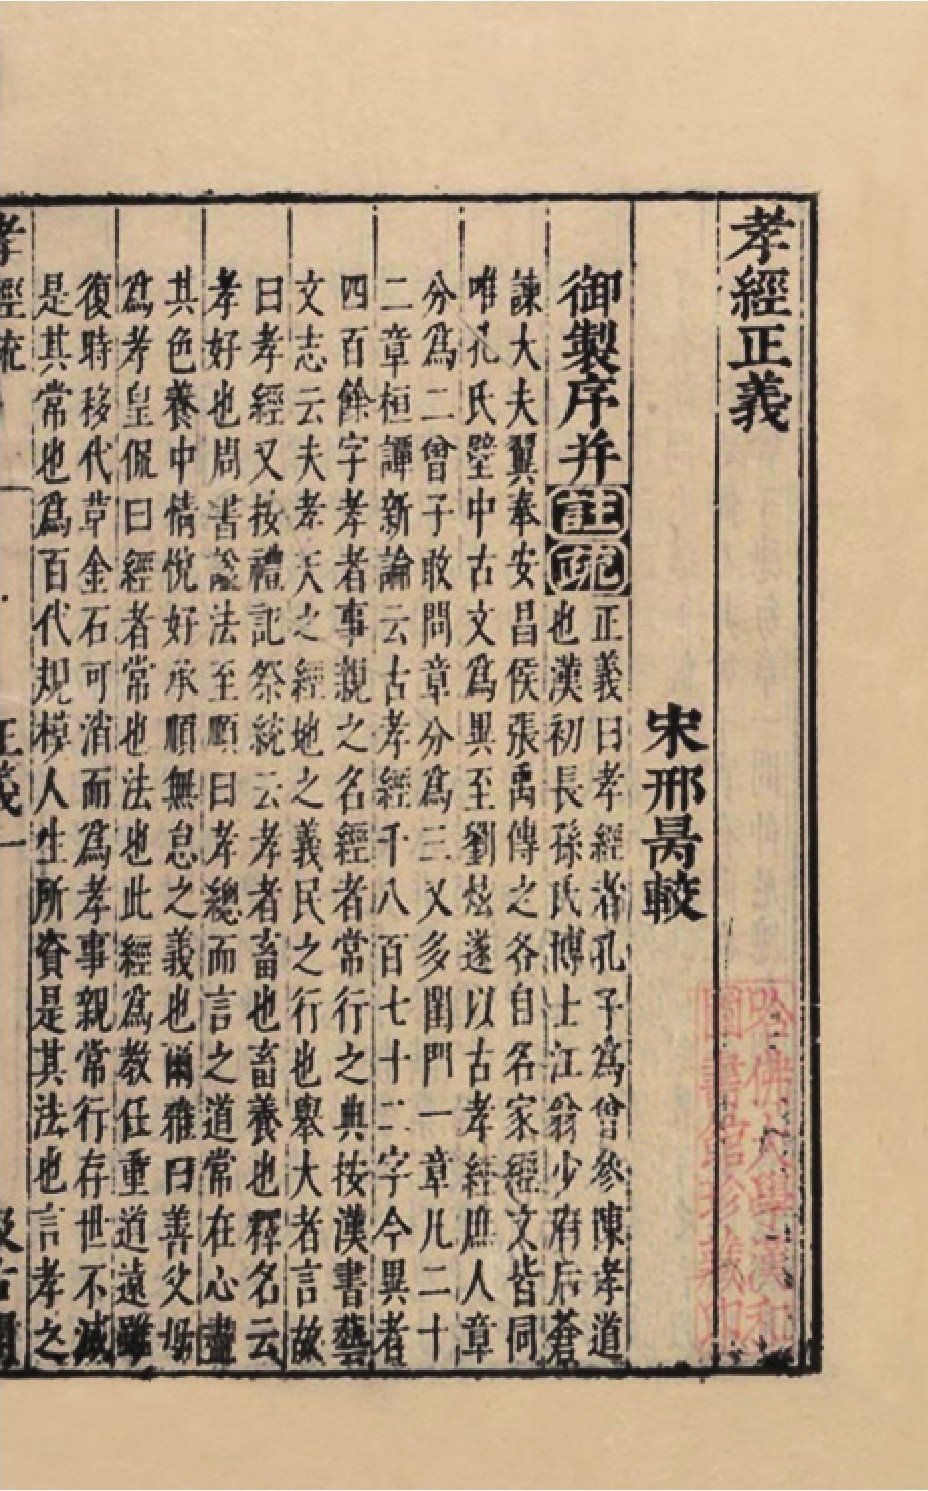 孝經正義
哈佛大學漢和
圖書館珍藏印
宋邢昺較
御製序并註疏
正義曰孝經者孔子爲曾參陳孝道
也漢初長孫氏博士江翁少府后蒼
諫大夫翼奉安昌侯張禹傳之各自名家經文皆同
唯孔氏壁中古文爲異至劉炫遂以古孝經庶人章
分爲二曾子敢問章分爲三又多閨門一章凡二十
二章桓譚新論云古孝經千八百七十二字今異者
四百餘字孝者事親之名經者常行之典按漢書藝
文志云夫孝天之經地之義民之行也舉大者言故
曰孝經又按禮記祭統云孝者畜也畜養也釋名云
孝好也周書諡法至順曰孝總而言之道常在心盡
其色養中情悅好承順無怠之義也爾雅曰善父母
爲孝皇侃曰經者常也法也此經爲教任重道遠雖
復時移代革金石可消而爲孝事親常行存世不滅
是其常也爲百代規模人生所資是其法也言孝之